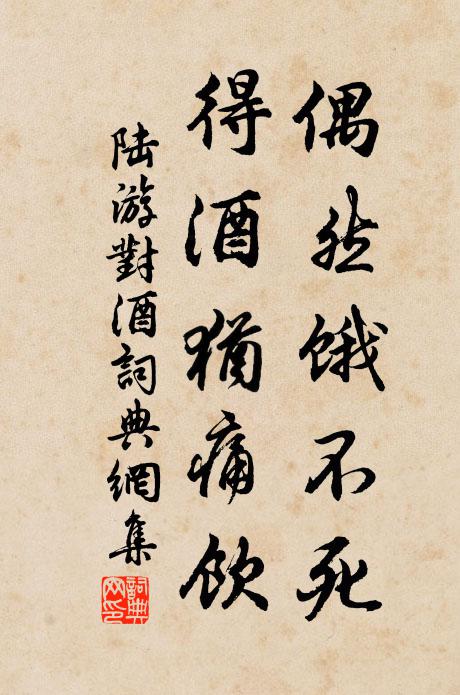 偶然餓不死
得酒猶痛飲
陸游對酒詞典網集
詞典网印